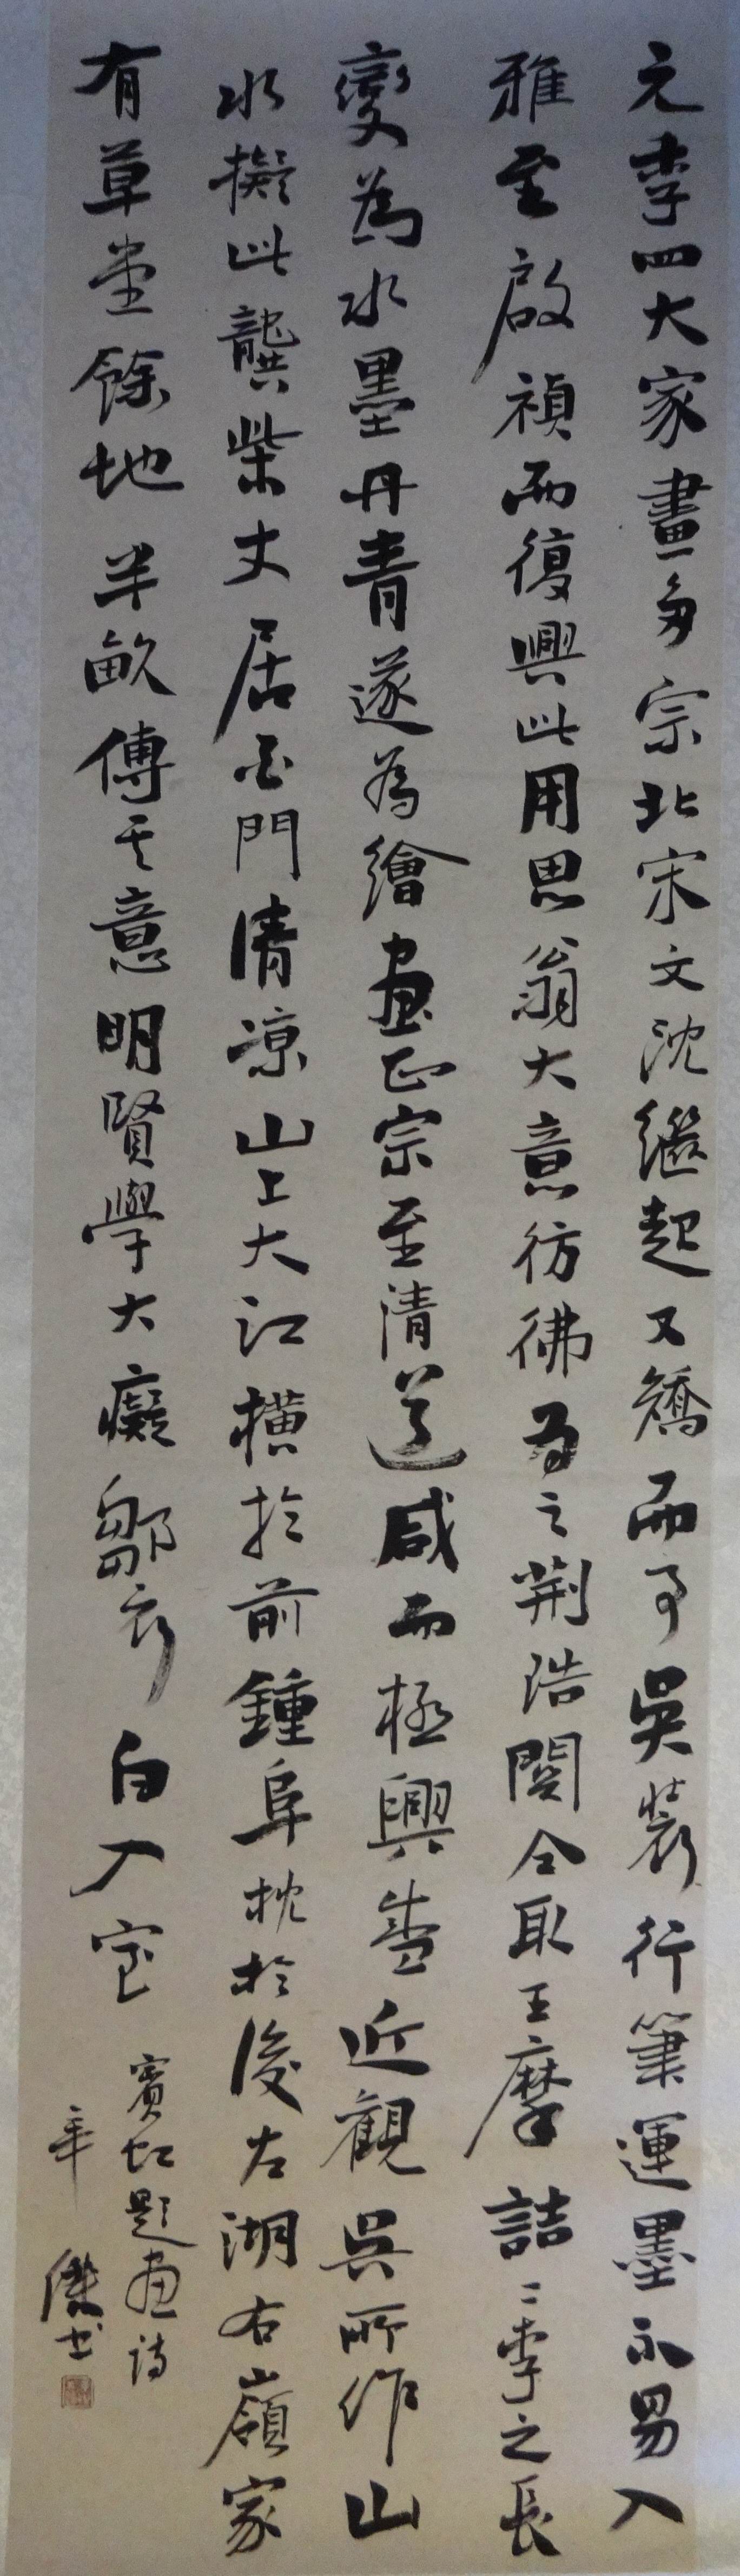 元季四大家畫多宗北宋文沈繼起又矯而事吳裝行筆運墨不易入
雅至啟禎而復興此用思翁大意彷彿為之荊浩關仝取王摩詰二李之長
變為水墨丹青遂為繪畫正宗至清道咸而極興盛近觀吳所作山
水擬此龔柴丈居白門清涼山上大江橫於前鍾阜枕於後左湖右嶺家
有草堂餘地半畝傳其意明賢學大癡鄒衣白入室
賓虹題畫詩
辛
傑書